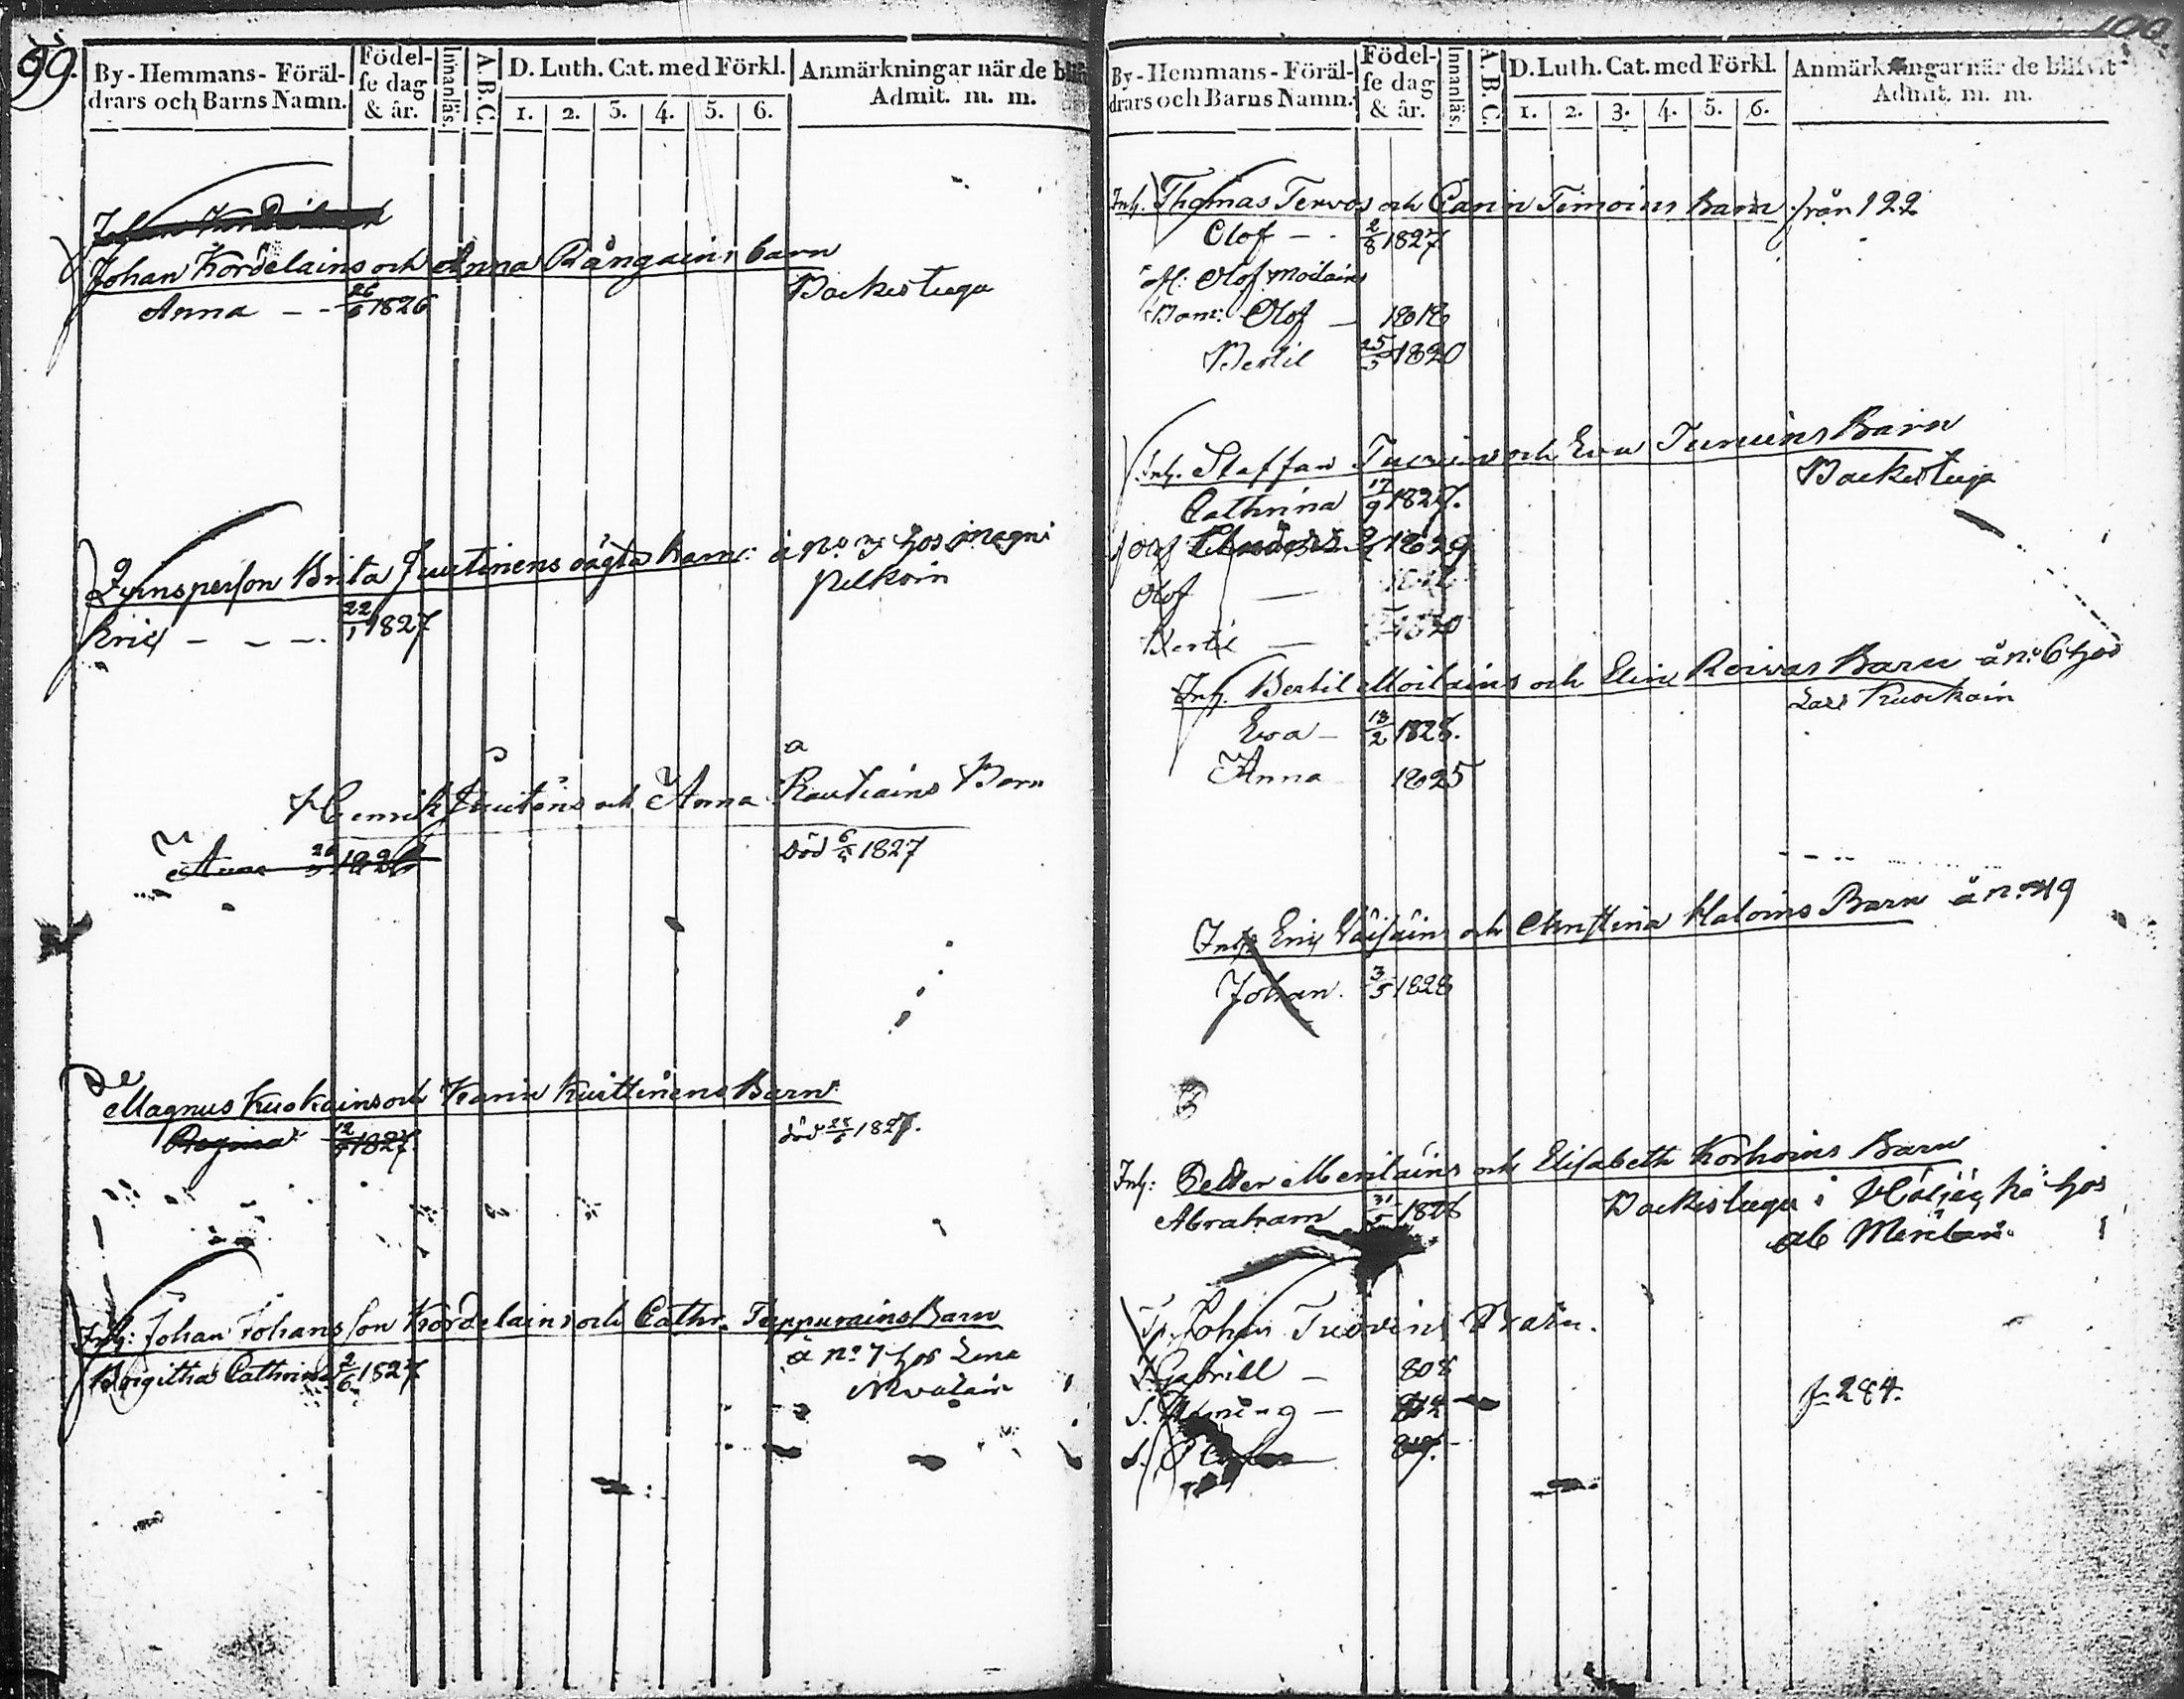 99.
By-Hemmans-Föräl-
drars och Barns Namn.
Födel-
se dag
& år.
Innanläs.
A.B.C.
D. Luth. Cat. med Förkl.
1. 2. 3. 4. 5. 6.
Anmärkningar när de blifv
Admit. m. m.
Johan Kordelains och Anna Rångains barn
Backestuga
Anna - - 26 1826
Qvinsperson Brita Juutinens oägta barn: å No 3 hos Magni
pelkoin
Eric - - - 22/1 1827
Henrik Juutens och Anna Rautiains Barn
Anna 1826 död 6/5 1827
Magnus Kuokains och Karin Kuittinens Barn
Regina 12 1827 död 1827.
Inh: Johan Johansson Kordelains och Cathr. Teppurains Barn
å No 7 hos Lena
Birgitha Cathrina 2/6 1827
100.
By-Hemmans-Föräl-
drars och Barns Namn.
Födel-
se dag
& år.
Innanläs.
A.B.C.
D. Luth. Cat. med Förkl.
1. 2. 3. 4. 5. 6.
Anmärkningar när de blifvit
Admit. m. m.
Inh. Thomas Tervos och Carin Timoins Barn från 122
Olof - - 2/8 1827
Olof Moilains
Barn: Olof - 1818
Bertil 25/5 1820
Inh. Staffan och Eva Barn
Backestuga
Cathrina 17/9 1827.
1829
Olof -
Bertil - 1820
Inh. Bertil Moilains och Elin Roivas Barn å No 6 hos
Lars
Eva - 13/2 1828.
Anna 1825
Inh Eric Väisäins och Christina Haloins Barn å No 49
Johan. 3/5 1828
Inh: Petter Meriläins och Elisabeth Korhoins Barn
Abraham 31/5 1828 Backestuga i hos
ab
Johan Barn.
S. Gabriell - 808
S. - 812 f 284.
S. 819. -